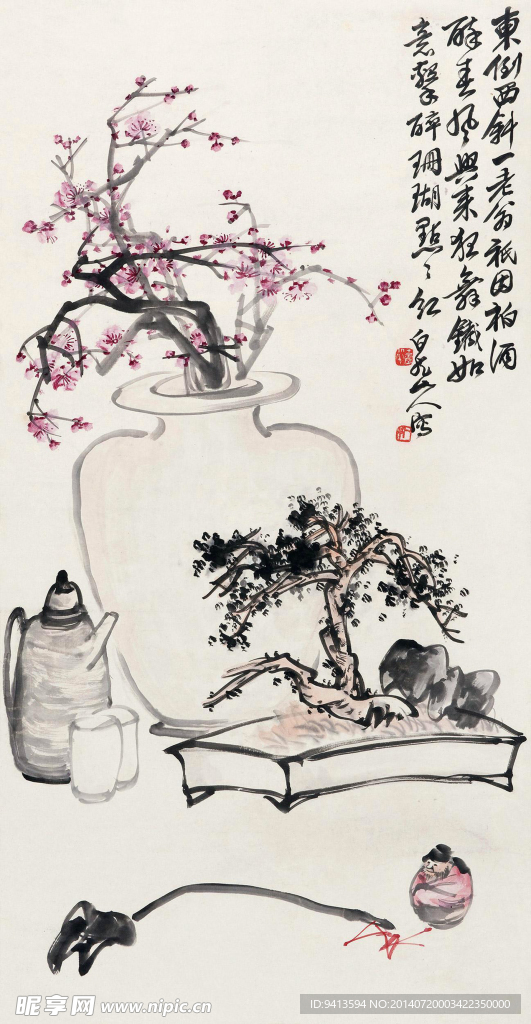 東倒西斜一老翁祇因柏酒
醉春風興來狂舞鐵如
意擊碎珊瑚點々紅
白龍山人寫
昵享网 www.nipic.cn
ID:9413594 NO:20140720003422350000